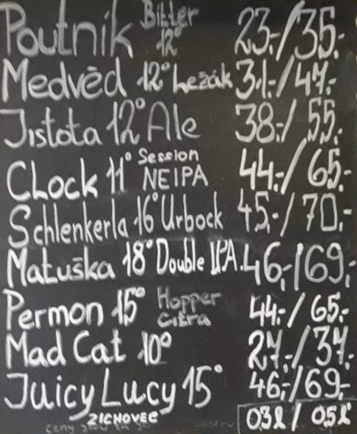 Poutník Bitter 12° 23,-/35,-
Medvěd 12° Ležák 31,-/47,-
Jistota 12° Ale 38,-/55,-
CLock 11° Session NEIPA 44,-/65,-
Schlenkerla 16° Urbock 45,-/70,-
Matuška 18° Double IPA 46,-/69,-
Permon 15° Hopper Citra 44,-/65,-
Mad Cat 10° 27,-/37,-
Juicy Lucy 15° 46,-/69,-
ZICHOVEC 03l / 05l
ceny